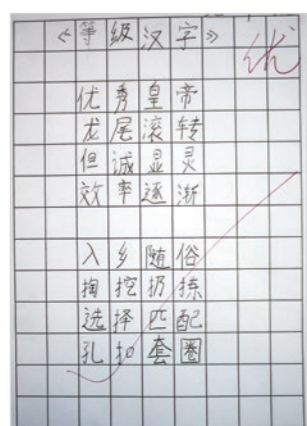 《等级汉字》
优
优秀皇帝
龙尾滚转
但诚显灵
效率逐渐
入乡随俗
掏挖扔拣
选择匹配
孔扣套圈